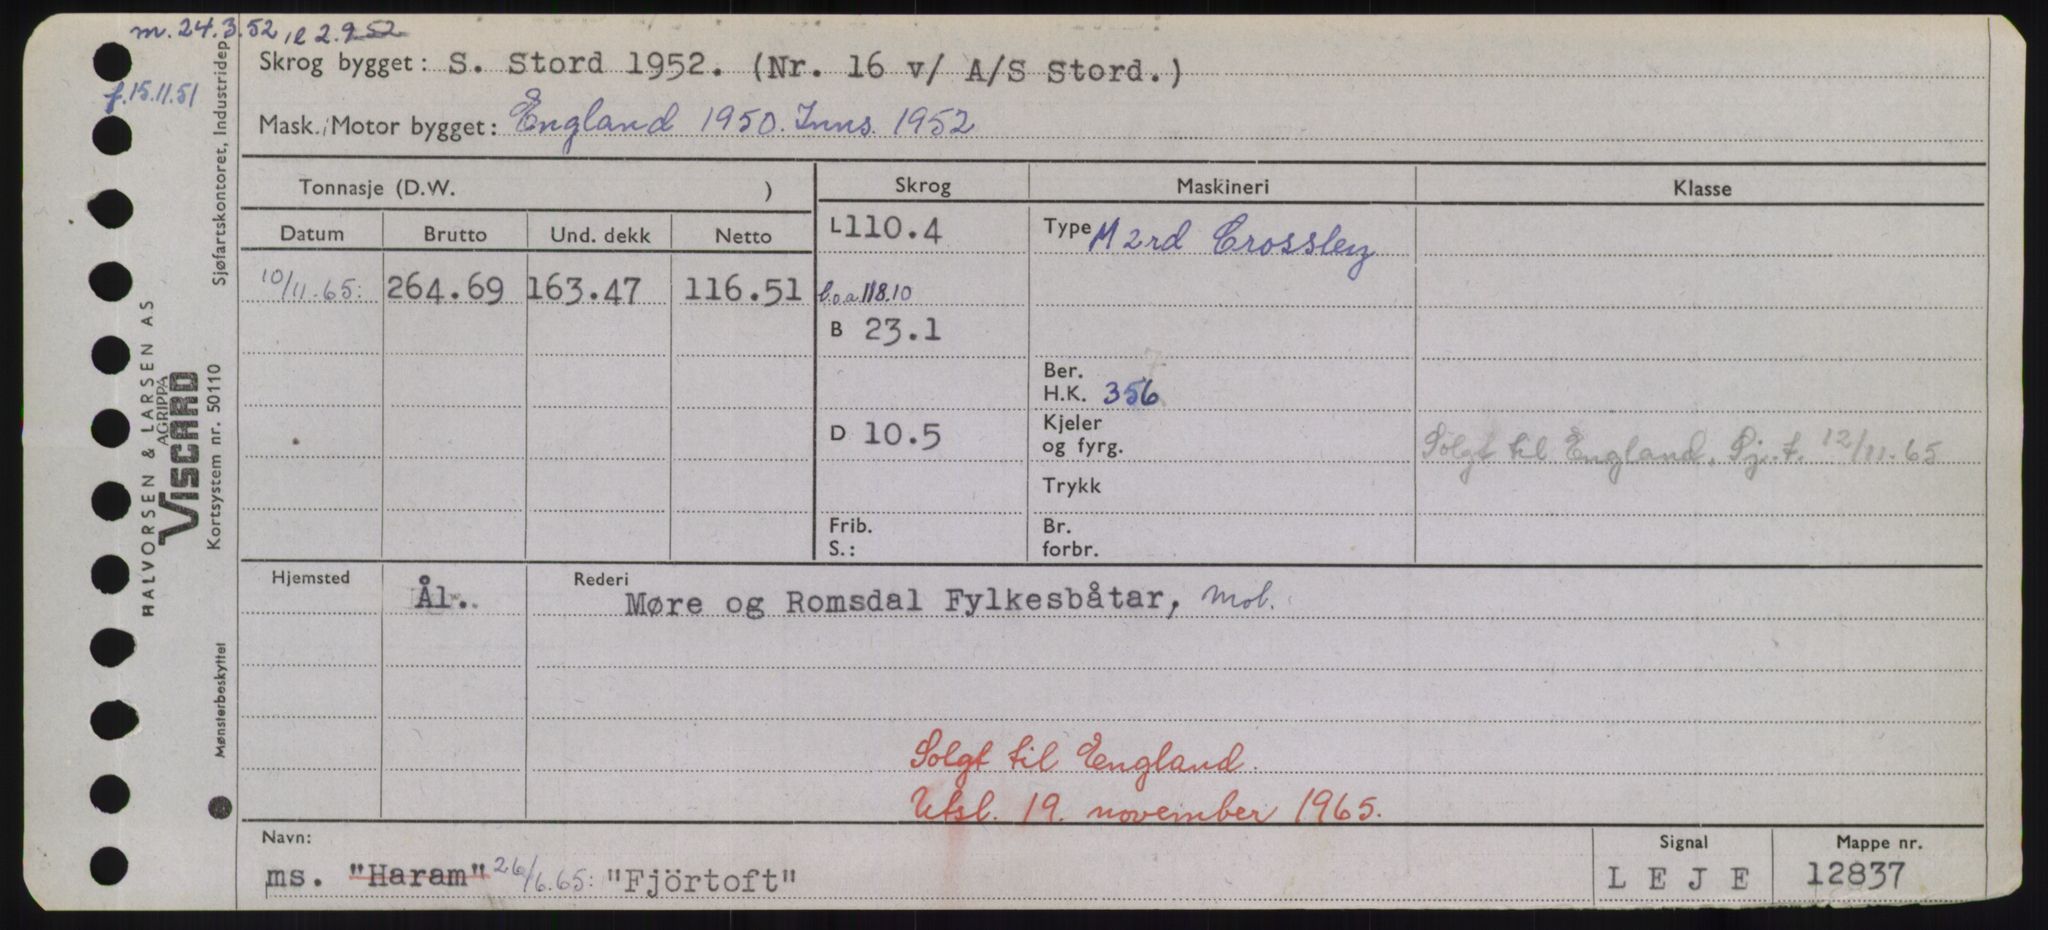 m. 24.3.52, e 2.9 52
f. 15.11.51
Skrog bygget: S. Stord 1952. (Nr. 16 v/ A/S Stord.)
Mask./Motor bygget: England 1950. Inns. 1952
Tonnasje (D.W. ) Skrog Maskineri Klasse
Datum Brutto Und. dekk Netto L 110.4 Type M 2rd Crossley
10/11.65: 264.69 163.47 116.51 l.o.a 118.10
B 23.1
Ber.
H.K. 356
D 10.5 Kjeler
og fyrg. Solgt til England. Sj.t. 12/11.65
Trykk
Frib. Br.
S.: forbr.
Hjemsted Ål. Rederi Møre og Romsdal Fylkesbåtar, Mol.
Solgt til England.
Utsl. 19. november 1965.
Navn: Signal Mappe nr.
ms. "Haram" 26/6.65: "Fjörtoft" L E J E 12837
Sjøfartskontoret, Industridep
HALVORSEN & LARSEN AS
AGRIPPA
VISCARD
Kortsystem nr. 50110
Mønsterbeskyttet